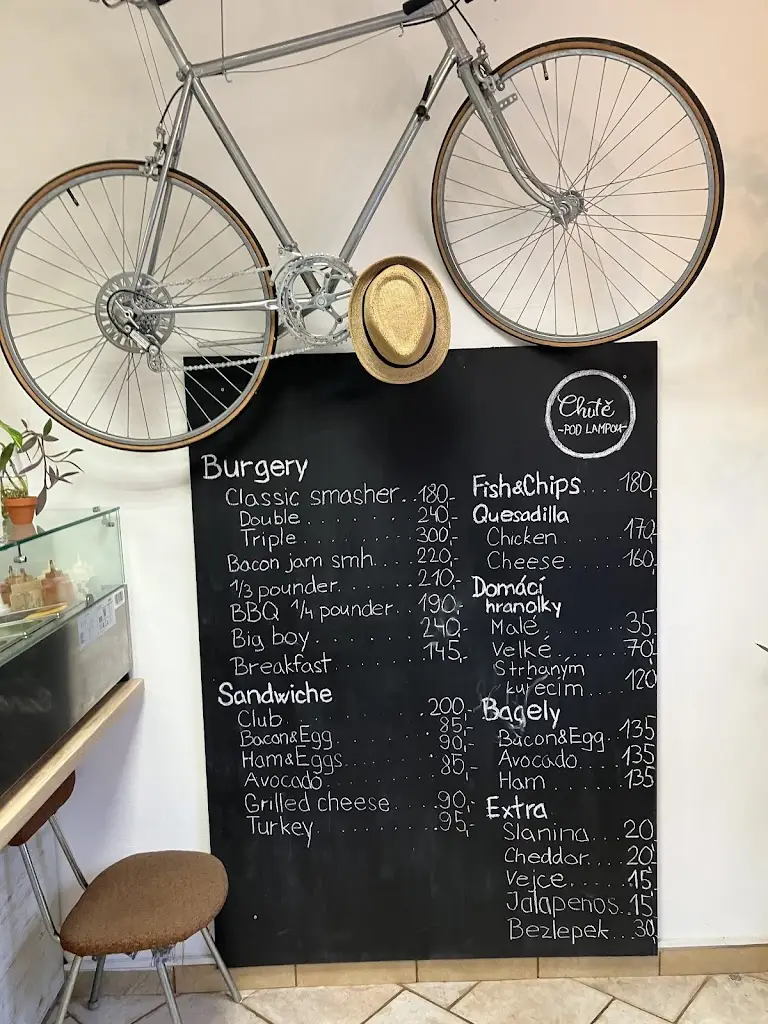 Chutě
-POD LAMPOU-
Burgery
Classic smasher..180,-
Double........240,-
Triple........300,-
Bacon jam smh...220,-
1/3 pounder.....210,-
BBQ 1/4 pounder..190,-
Big boy........240,-
Breakfast......145,-
Sandwiche
Club........200,-
Bacon&Egg....85,-
Ham&Eggs....90,-
Avocado.....85,-
Grilled cheese...90,-
Turkey.........95,-
Fish&Chips....180,-
Quesadilla
Chicken......170,-
Cheese......160,-
Domácí
hranolky
Malé........35,-
Velké.......70,-
Strhaným
kuřecím...120
Bagely
Bacon&Egg..135
Avocado....135
Ham.......135
Extra
Slanina...20,
Cheddar....20,
Vejce......15,
Jalapenos..15,
Bezlepek...30,